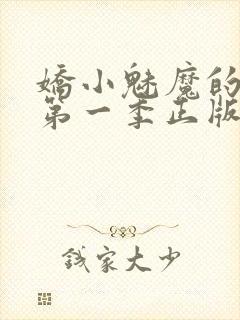 嬌小魅魔的
第一季正版
錢家大少